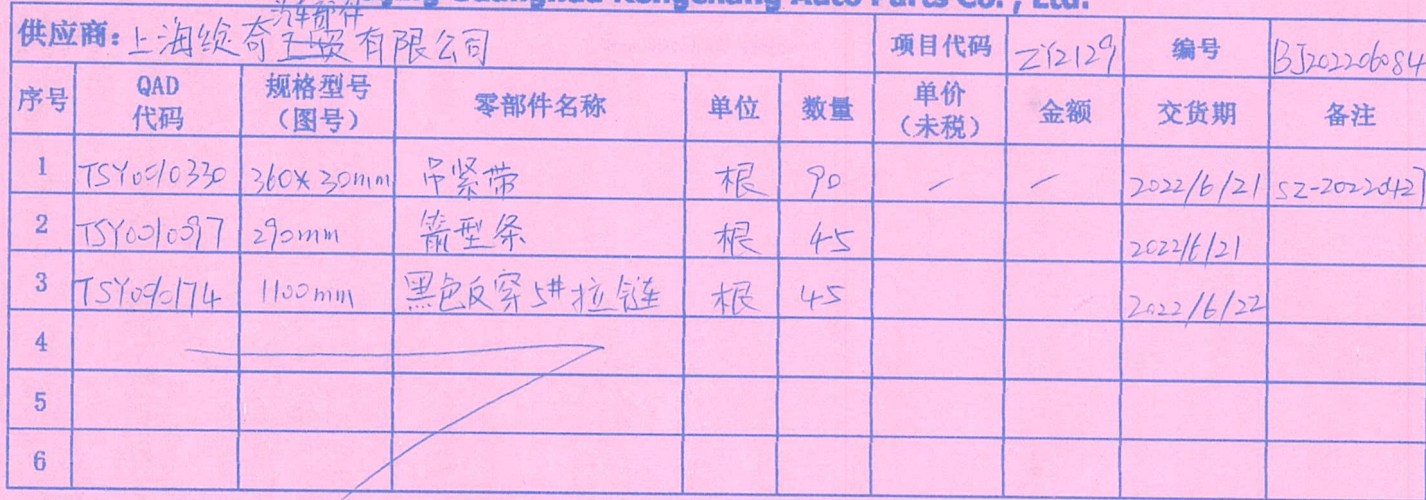 Auto Parts Co., Ltd.
汽车部件
供应商: 上海绽奇工贸有限公司 项目代码 ZY2129 编号 BJ202206084
序号 QAD代码 规格型号(图号) 零部件名称 单位 数量 单价(未税) 金额 交货期 备注
1 TSY0010330 360*30mm 吊紧带 根 90 / / 2022/6/21 SZ-20220427
2 TSY0010097 290mm 箭型条 根 45 2022/6/21
3 TSY0010174 1100mm 黑色反穿5#拉链 根 45 2022/6/22
4
5
6